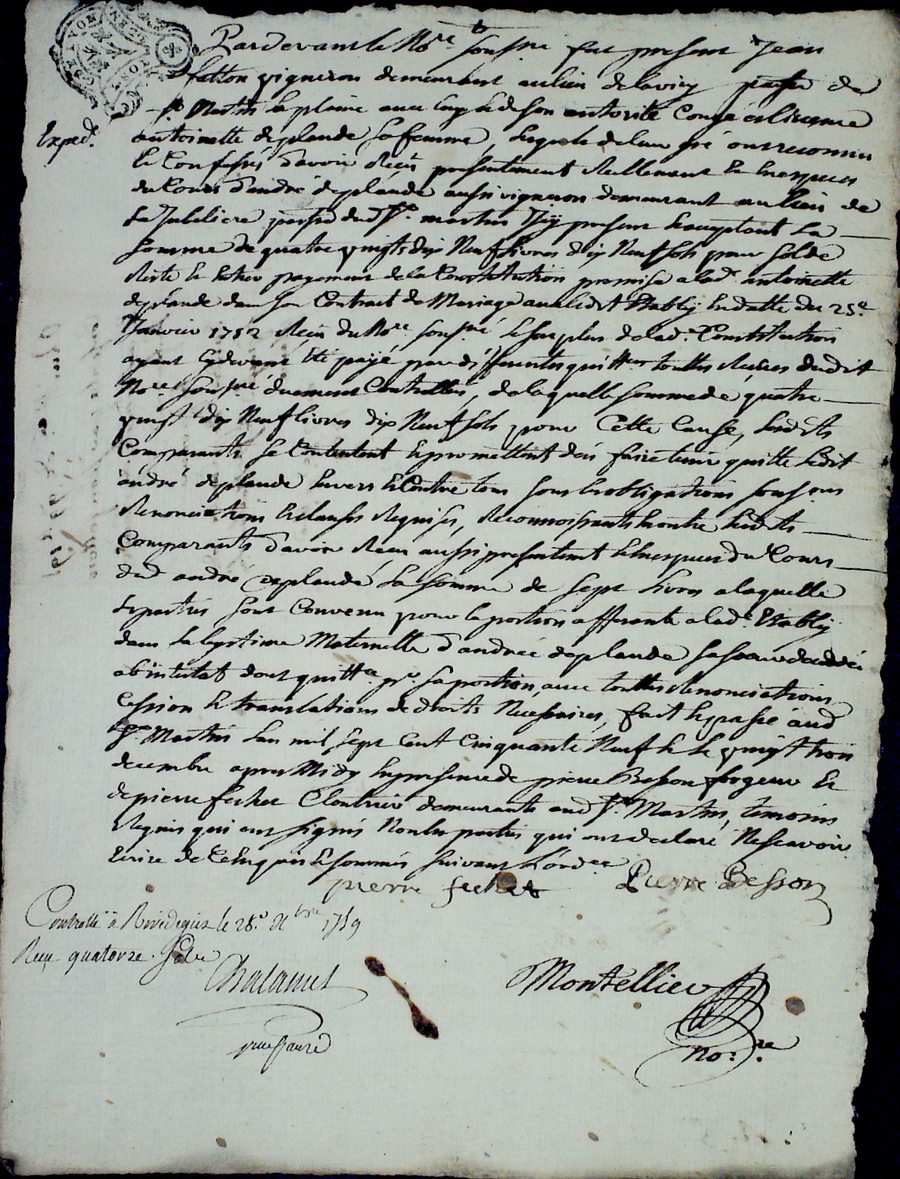 Pardevant le No.re sous.né fut present Jean
fatton vigneron demeurant au lieu de paroisse de
St Martin la plaine avec de son autorité Congé et licence
Exped.
antoinette deplaude sa femme, lesquels de leur gré ont reconnu
Et Confessés d'avoir Reçu presentement Reellement Et En especes
du Cours d'andré deplaude aussi vigneron demeurant au lieu de
La Jubiliere parse dud. St. martin Icy present Et acceptant La
Somme de quatre vingts dix Neuf livres dix Neuf sols pour Solde
Reste Et Entier payement de la Constitution promise a lad. antoinette
deplaude dans son Contrat de Mariage avec ledit En datte du 25.e
Janvier 1752 Reçu du No.re sous.né le surplus de lad. Constitution
ayant Cydevant Eté payé par differentes quittces touttes Reçues dudit
No.re sous.né duement Controllés, de laquelle somme de quatre
vingt dix Neuf livres dix Neuf sols pour Cette Cause, lesdits
Comparants Se Contentent Et promettent d'en faire tenir quitte ledit
andré deplaude Envers Et Contre tous sous les obligations
Renonciations Et clauses Requises, Reconnoissants En outre lesdits
Comparants d'avoir Reçu aussi presentement Et En especes du Cours
dud. andré deplaude La Somme de Sept livres a laquelle
les parties sont Convenu pour la portion afferante a lad.
dans la legitime Maternelle d'andrée deplaude sa soeur decedée
abintestat dont quitt.ce pr. sa portion avec touttes Renonciations
Cession Et translations de droits Necessaires, fait Et passé aud.
St Martin Lan mil Sept Cent Cinquante Neuf Et le vingt trois
decembre apres Midy En presence de pierre Besson forgeur Et
de pierre fechet Cloutrier demeurants aud. St. Martin, temoins
Requis qui ont signés Non les parties qui ont declaré Ne scavoir
Ecrire de Ce Enquis Et sommés suivant L'ord.ce
pierre fechet Pierre Besson
Controllé à Rivedegier le 28.e Xbre 1759
Reçu quatorze Sols
Chalanet
Montellier
no.re